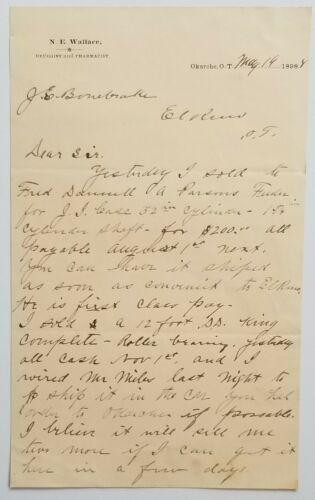 N. E. Wallace,
DRUGGIST AND PHARMACIST.
Okarche, O.T. May 19 1898
J. E. Bonebrake
El Reno
O. T.
Dear Sir.
Yesterday I sold to
Fred a Parsons Feeder
for J. I. Case 32 in cylinder -
cylinder shaft - for $200.00 all
payable August 1st next.
You can have it shiped
as soon as convenient to El Reno.
He is first class pay.
I sold a 12 foot D.D. King
complete - Roller bearing. yesterday
all cash Nov 1st, and I
wired Mr Miles last night to
ship it in the car you had
order to Okarche if possable.
I beleive it will sell me
two more if I can get it
here in a few days.